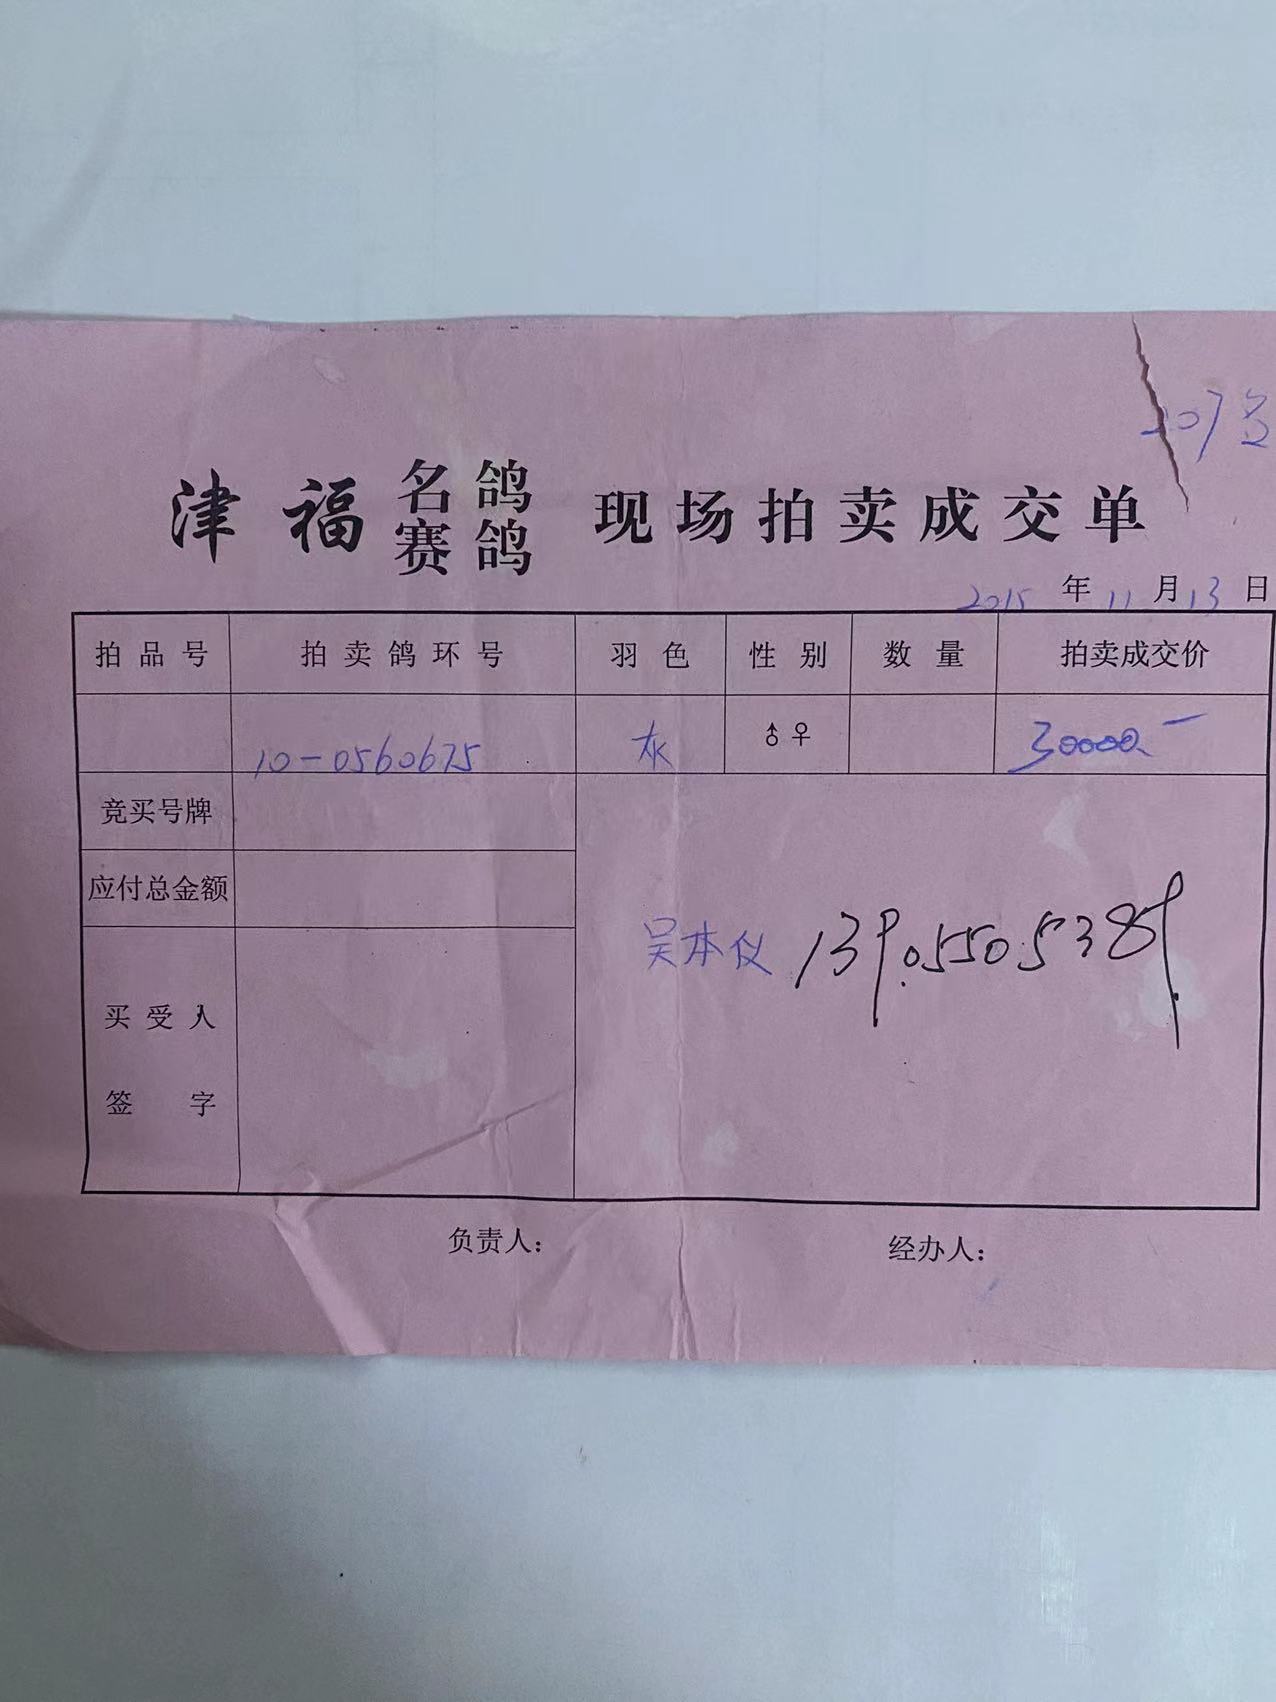 207名
津福 名鸽 赛鸽 现场拍卖成交单
2015 年 11 月 13 日
拍品号 拍卖鸽环号 羽色 性别 数量 拍卖成交价
10-0560675 灰 ♂♀ 30000.一
竞买号牌
应付总金额
吴本仪 139.0550.5389.
买受人
签字
负责人： 经办人：